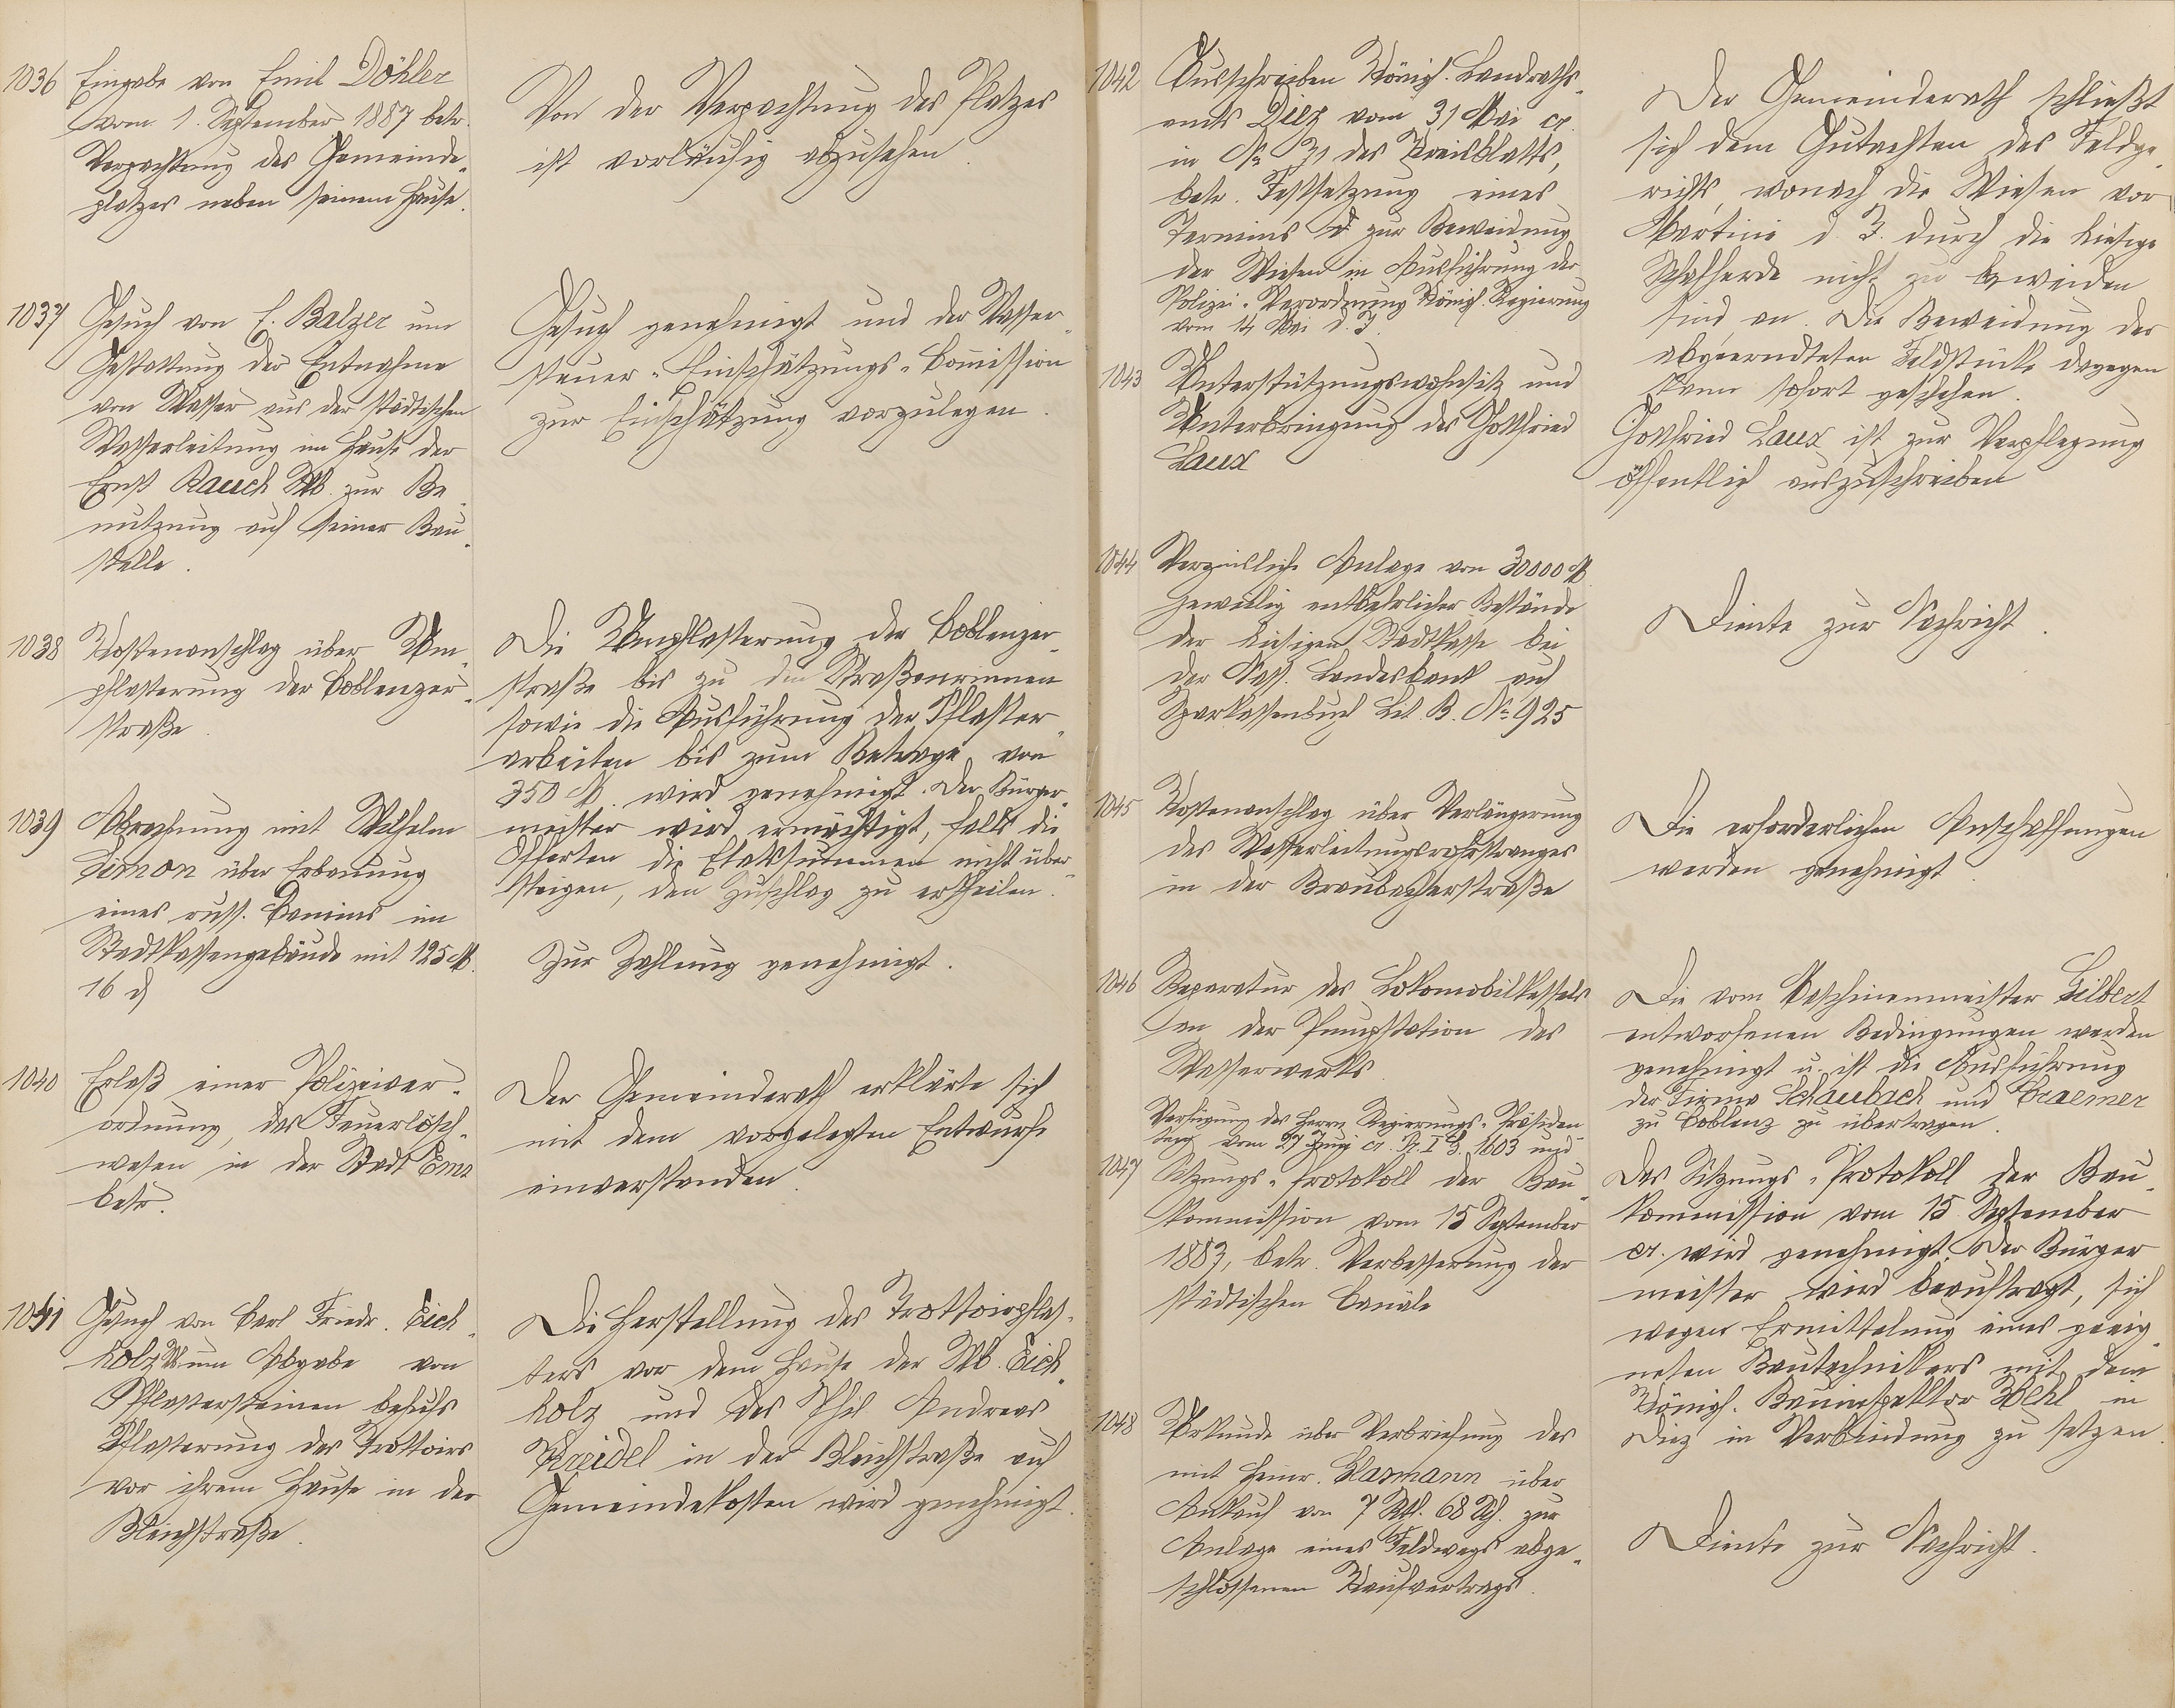 1036 Eingabe von Emil Döhler
vom 1. September 1887 betr.
Verpachtung des Gemeinde-
platzes neben seinem Hause.
Von der Verpachtung des Platzes
ist vorläufig abzusehen.
1037 Gesuch von E. Balzer um
Gestattung der Entnahme
von Wasser aus der städtischen
Wasserleitung im Hause der
Ernst Rauch Wb. zur Be-
nutzung auf seiner Bau-
stelle.
Gesuch genehmigt und der Wasser-
steuer-Einschätzungs-Commission
zur Einschätzung vorzulegen.
1038 Kostenanschlag über Um-
pflasterung der Coblenzer-
straße.
Die Umpflasterung der Coblenzer-
straße bis zu den Straßenrinnen
sowie die Ausführung der Pflaster-
arbeiten bis zum Betrage von
350 M. wird genehmigt. Der Bürger-
meister wird ermächtigt, falls die
Offerten die Etatsummen nicht über-
steigen, den Zuschlag zu ertheilen.
1039 Abrechnung mit Wilhelm
Simon über Erbauung
eines russ. Kamins im
Stadtkassengebäude mit 125 M.
16 d
Zur Zahlung genehmigt.
1040 Erlaß einer Polizeiver-
ordnung, das Feuerlösch-
wesen in der Stadt Ems
betr.
Der Gemeinderath erklärte sich
mit dem vorgelegten Entwurfe
einverstanden.
1041 Gesuch von Carl Friedr. Eich-
holz um Abgabe von
Pflastersteinen behufs
Pflasterung des Trottoirs
vor ihrem Hause in der
Bleichstraße.
Die Herstellung des Trottoirpflas-
ters vor dem Hause der Wb. Eich-
holz und des Phil. Andreas
Kreidel in der Bleichstraße auf
Gemeindekosten wird genehmigt.
1042 Ausschreiben Königl. Landraths-
amts Diez vom 31 Mai cr.
in No 31 des Kreisblatts,
betr. Festsetzung eines
Termins zur Beweidung
der Wiesen in Ausführung der
Polizei-Verordnung Königl. Regierung
vom 14 Mai d. J.
Der Gemeinderath schließt
sich dem Gutachten des Feldge-
richts, wonach die Wiesen vor
Martini d. J. durch die hiesige
Schafherde nicht zu beweiden
sind an. Die Beweidung der
abgeerndteten Feldstücke dagegen
kann sofort geschehen.
1043 Unterstützungswohnsitz und
Unterbringung des Gottfried
Laux
Gottfried Laux ist zur Verpflegung
öffentlich auszuschreiben
1044 Verzinsliche Anlage von 30000 M.
zeweilig entbehrlicher Bestände
der hiesigen Stadtkasse bei
der Nass. Landesbank auf
Sparkassenbuch Lit. B. No 925
Diente zur Nachricht.
1045 Kostenanschlag über Verlängerung
des Wasserleitungsrohrstranges
in der Braubacherstraße
Die erforderlichen Anschaffungen
werden genehmigt.
1046 Reparatur des Lokomobilkessels
an der Pumpstation des
Wasserwerks
Die vom Maschinenmeister Hilbert
entworfenen Bedingungen werden
genehmigt u. ist die Ausführung
der Firma Schaubach und Graemer
zu Coblenz zu übertragen.
Verfügung des Herrn Regierungs-Präsiden-
ten vom 27 Juni cr. 1603 und
1047 Sitzungs-Protokoll der Bau-
kommission vom 15 September
1887, betr. Verbesserung der
städtischen Canäle
Das Sitzungs-Protokoll der Bau-
kommission vom 15 September
cr. wird genehmigt. Der Bürger
meister wird beauftragt, sich
wegen Ermittelung eines geeig-
neten Bautechnikers mit dem
Königl. Bauinspektor Hehl in
Diez in Verbindung zu setzen.
1048 Urkunde über Verbriefung des
mit Heinr. Hasmann über
Ankauf von 7 Rth. 68 Sch. zur
Anlage eines Feldwegs abge-
schlossenen Kaufvertrags.
Diente zur Nachricht.